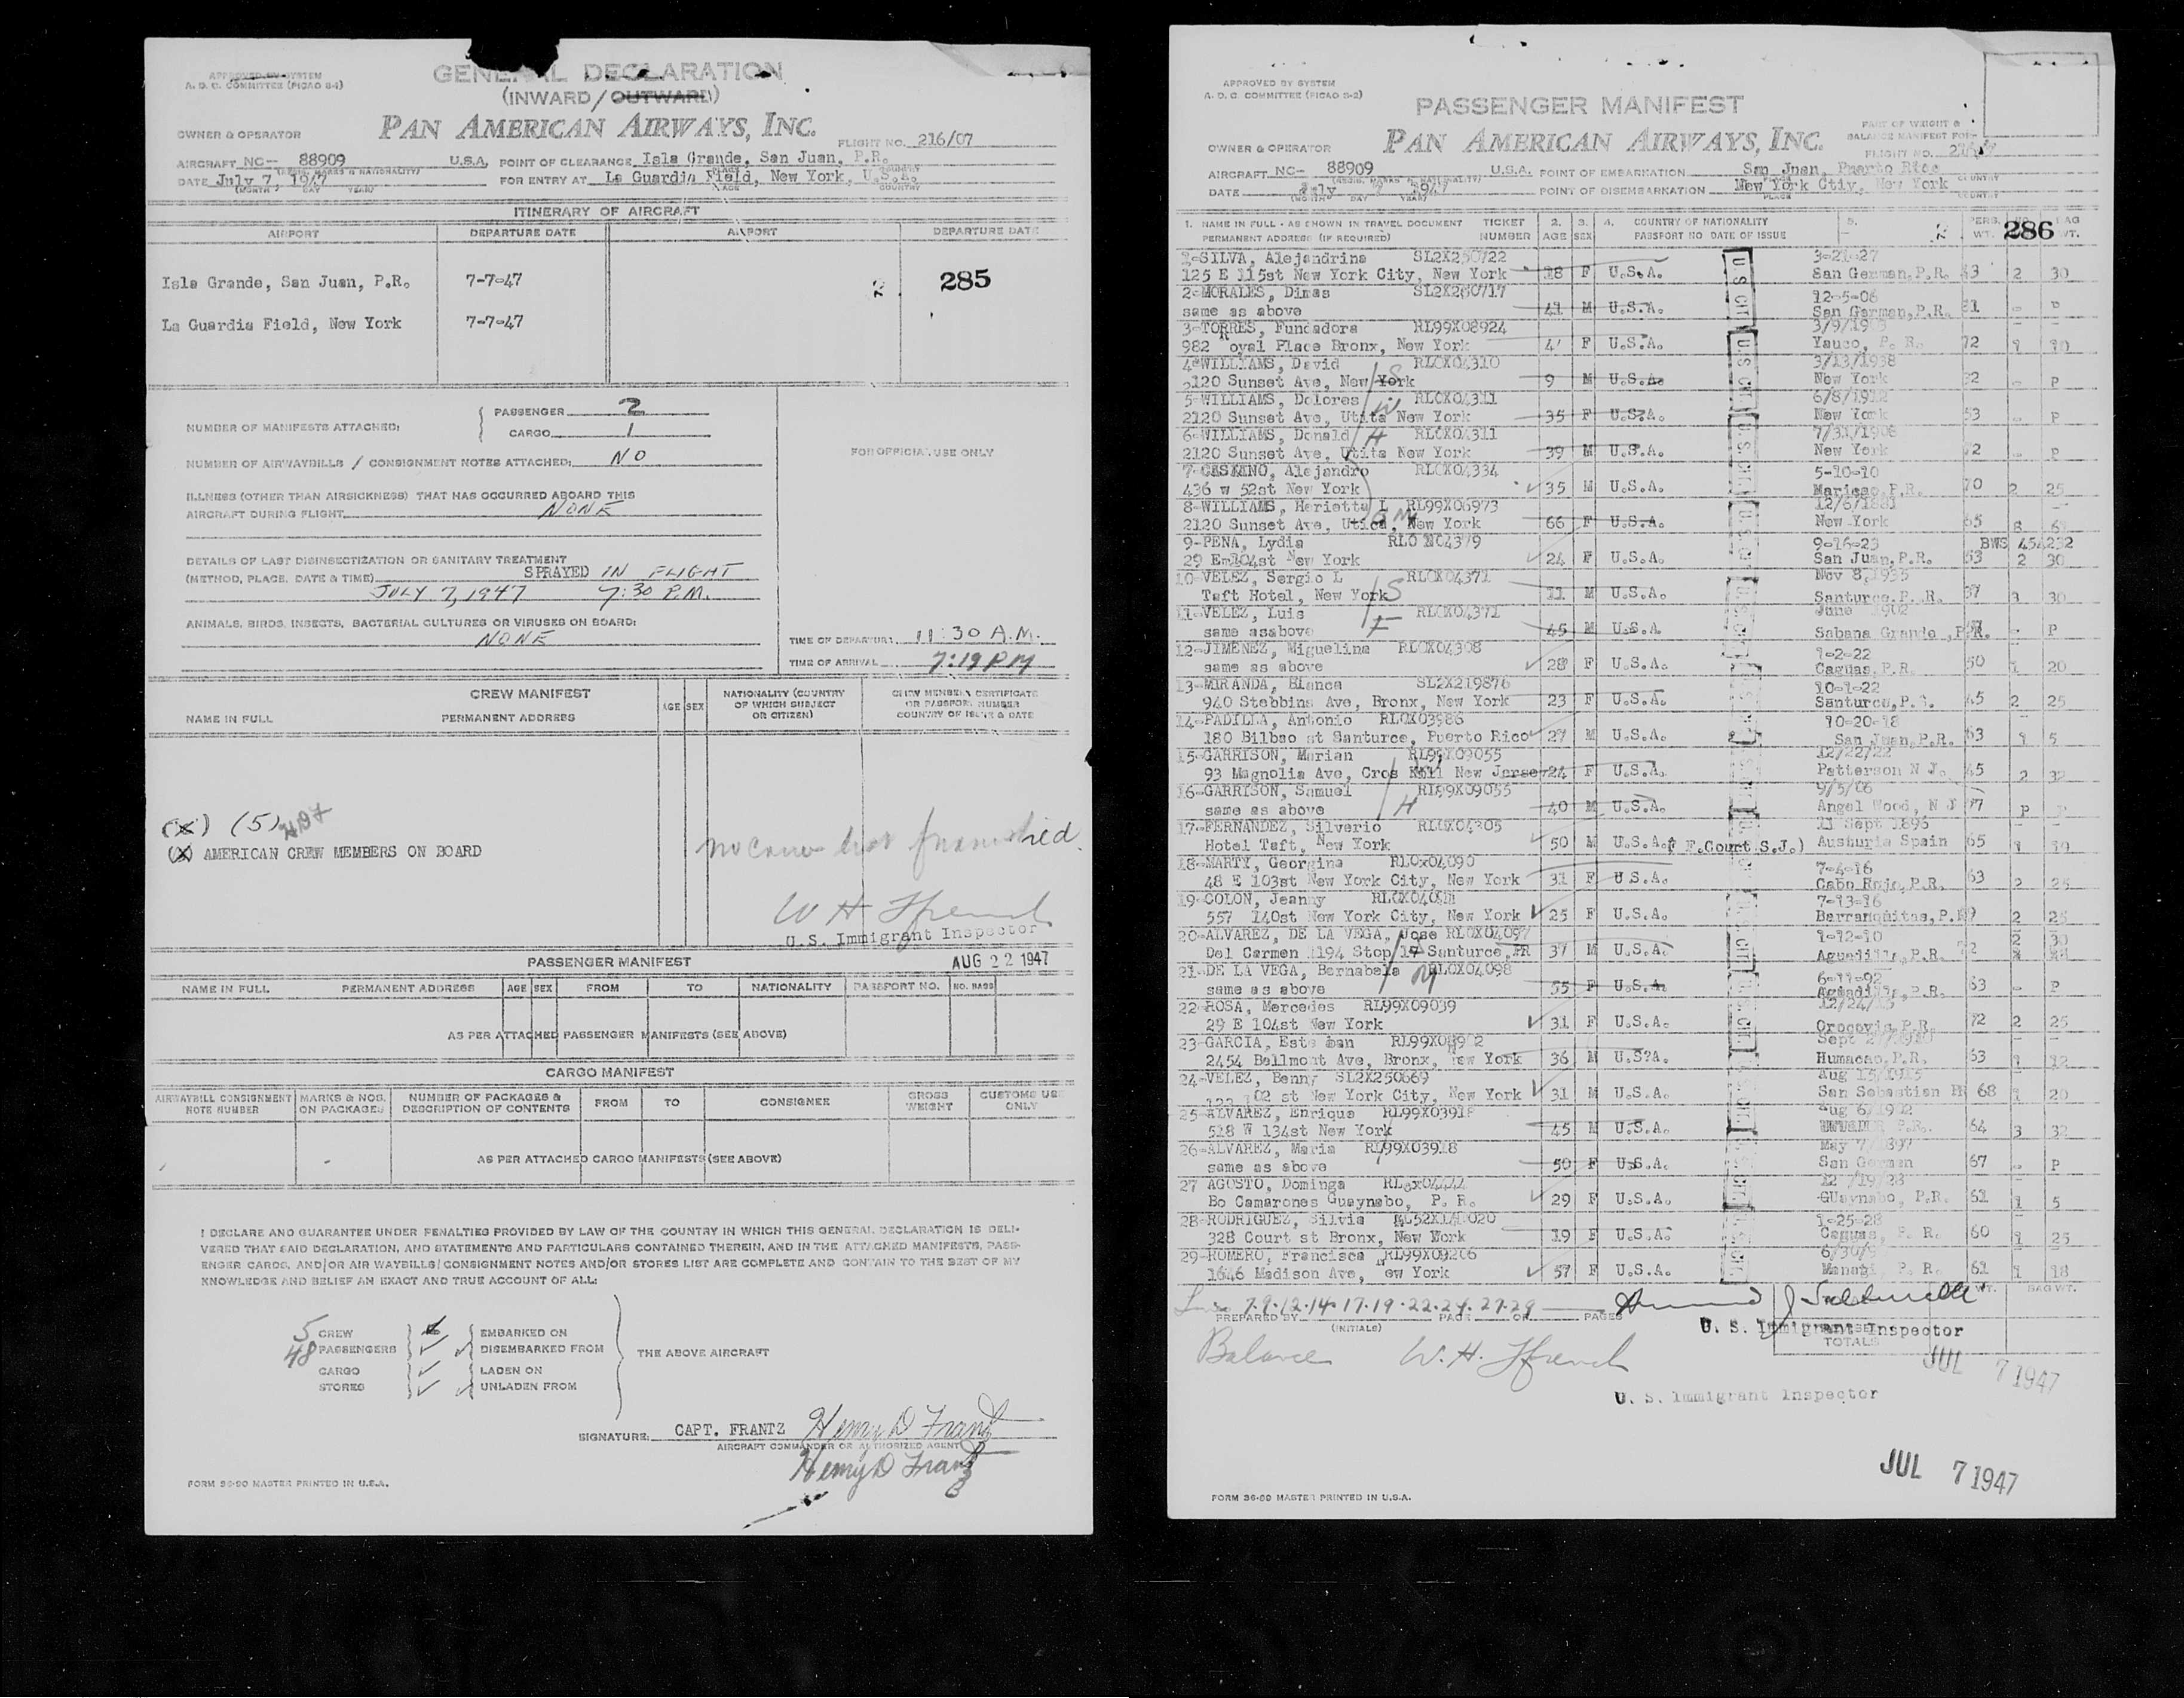 APPROVED BY SYSTEM
A. D. C. COMMITTEE (PICAO S-1)
GENERAL DECLARATION
(INWARD/OUTWARD)
OWNER & OPERATOR
PAN AMERICAN AIRWAYS, INC.
FLIGHT NO. 216/07
AIRCRAFT NC-- 88909 U.S.A.
POINT OF CLEARANCE Isla Grande, San Juan, P.R.
DATE July 7, 1947
(MONTH DAY YEAR)
FOR ENTRY AT La Guardia Field, New York, U.S.A.
COUNTRY
ITINERARY OF AIRCRAFT
AIRPORT DEPARTURE DATE AIRPORT DEPARTURE DATE
Isla Grande, San Juan, P.R. 7-7-47
285
La Guardia Field, New York 7-7-47
NUMBER OF MANIFESTS ATTACHED:
PASSENGER 2
CARGO 1
NUMBER OF AIRWAYBILLS / CONSIGNMENT NOTES ATTACHED: NO
FOR OFFICIAL USE ONLY
ILLNESS (OTHER THAN AIRSICKNESS) THAT HAS OCCURRED ABOARD THIS
AIRCRAFT DURING FLIGHT NONE
DETAILS OF LAST DISINSECTIZATION OR SANITARY TREATMENT
(METHOD, PLACE, DATE & TIME) SPRAYED IN FLIGHT
JULY 7, 1947 7:30 P.M.
ANIMALS, BIRDS, INSECTS, BACTERIAL CULTURES OR VIRUSES ON BOARD:
NONE
TIME OF DEPARTURE 11:30 A.M.
TIME OF ARRIVAL 7:19 PM
CREW MANIFEST
NAME IN FULL PERMANENT ADDRESS AGE SEX
NATIONALITY (COUNTRY OF WHICH SUBJECT OR CITIZEN)
CREW MEMBER CERTIFICATE OR PASSPORT NUMBER COUNTRY OF ISSUE & DATE
(X) (5) HDF
(X) AMERICAN CREW MEMBERS ON BOARD
W H Ffrench
U.S. Immigrant Inspector
PASSENGER MANIFEST
AUG 22 1947
NAME IN FULL PERMANENT ADDRESS AGE SEX FROM TO NATIONALITY PASSPORT NO. NO. BAGS
AS PER ATTACHED PASSENGER MANIFESTS (SEE ABOVE)
CARGO MANIFEST
AIRWAYBILL CONSIGNMENT NOTE NUMBER
MARKS & NOS. ON PACKAGES
NUMBER OF PACKAGES & DESCRIPTION OF CONTENTS
FROM TO CONSIGNEE
GROSS WEIGHT
CUSTOMS USE ONLY
AS PER ATTACHED CARGO MANIFESTS (SEE ABOVE)
I DECLARE AND GUARANTEE UNDER PENALTIES PROVIDED BY LAW OF THE COUNTRY IN WHICH THIS GENERAL DECLARATION IS DELI-
VERED THAT SAID DECLARATION, AND STATEMENTS AND PARTICULARS CONTAINED THEREIN, AND IN THE ATTACHED MANIFESTS, PASS-
ENGER CARDS, AND/OR AIR WAYBILLS/CONSIGNMENT NOTES AND/OR STORES LIST ARE COMPLETE AND CONTAIN TO THE BEST OF MY
KNOWLEDGE AND BELIEF AN EXACT AND TRUE ACCOUNT OF ALL:
5 CREW EMBARKED ON
48 PASSENGERS DISEMBARKED FROM
THE ABOVE AIRCRAFT
CARGO LADEN ON
STORES UNLADEN FROM
SIGNATURE: CAPT. FRANTZ Henry D Frantz
AIRCRAFT COMMANDER OR AUTHORIZED AGENT
Henry D Frantz
FORM 36-90 MASTER PRINTED IN U.S.A.
APPROVED BY SYSTEM
A. D. C. COMMITTEE (PICAO S-2)
PASSENGER MANIFEST
PART OF WEIGHT &
BALANCE MANIFEST FORM
OWNER & OPERATOR
PAN AMERICAN AIRWAYS, INC.
FLIGHT NO.
AIRCRAFT NC- 88909 U.S.A.
POINT OF EMBARKATION San Juan, Puerto Rico
DATE July 7 1947
POINT OF DISEMBARKATION New York Ctiy, New York
(MONTH DAY YEAR) PLACE COUNTRY
1. NAME IN FULL - AS SHOWN IN TRAVEL DOCUMENT TICKET 2. 3. 4. COUNTRY OF NATIONALITY 5. PERS. BAG
PERMANENT ADDRESS (IF REQUIRED) NUMBER AGE SEX PASSPORT NO DATE OF ISSUE WT. 286 WT.
1-SILVA, Alejandrina SL2X250722 3-21-27
125 E 115st New York City, New York 18 F U.S.A. San German, P.R. 43 2 30
2-MORALES, Dimas SL2X280717 12-5-06
same as above 41 M U.S.A. San German, P.R. 81 - P
3-TORRES, Fundadora RL99X08924
982 Royal Place Bronx, New York F U.S.A. Yauco, P. R. 72 1 10
4-WILLIAMS, David RLOX04310 3/13/1938
2120 Sunset Ave, New York 9 M U.S.A. New York 32 - P
5-WILLIAMS, Dolores W RLOX04311 6/8/1912
2120 Sunset Ave, Utita New York 35 F U.S.A. New York 53 - P
6-WILLIAMS, Donald H RLOX04311 7/31/1908
2120 Sunset Ave, Utita New York 39 M U.S.A. New York 72 - P
7-CASTANO, Alejandro RLOX04334 5-10-10
436 w 52st New York 35 M U.S.A. Maricao, P.R. 70 2 25
8-WILLIAMS, Harietta L RL99X06973 12/6/1881
2120 Sunset Ave, Utica, New York 66 F U.S.A. New York
9-PENA, Lydia 9-16-23 BWS 454232
29 E-104st New York 24 F U.S.A. San Juan, P.R. 53 2 30
10-VELEZ, Sergio L RLOX04371 Nov 8, 1935
Taft Hotel, New York S 11 M U.S.A. Santurce, P.R. 37 3 30
11-VELEZ, Luis RLOX04371 June 1902
same asabove F 45 M U.S.A Sabana Grande, P.R. - P
12-JIMENEZ, Miguelina RLOX04308 1-2-22
same as above 28 F U.S.A. Caguas, P.R. 50 1 20
13-MIRANDA, Blanca SL2X219876 10-1-22
940 Stebbins Ave, Bronx, New York 23 F U.S.A. Santurce, P.R. 45 2 25
14-PADILLA, Antonio RLOX03986 10-20-18
180 Bilbao st Santurce, Puerto Rico 27 M U.S.A. San Juan, P.R. 63 1 5
15-GARRISON, Marian RL99X09055 12/22/22
93 Magnolia Ave, Cros Kill New Jersey 24 F U.S.A. Patterson N J. 45 2 32
16-GARRISON, Samuel RL99X09055 9/5/06
same as above H 40 M U.S.A. Angel Wood, N J 77 P
17-FERNANDEZ, Silverio RLOX04305 11 Sept 1896
Hotel Taft, New York 50 M U.S.A.( F.Court S.J.) Aushuria Spain 65 1 19
18-MARTY, Georgina RLOx04090 7-4-16
48 E 103st New York City, New York 31 F U.S.A. Cabo Rojo, P.R. 63 2 25
19-COLON, Jeanny 7-13-16
557 140st New York City, New York 25 F U.S.A. Barranquitas, P.R 2 25
20-ALVAREZ, DE LA VEGA, Jose RLOX04097 1-12-10
Del Carmen 1194 Stop 17 Santurce, PR 37 M U.S.A. Aguadilla, P.R.
21-DE LA VEGA, Bernabela RLOX04098 6-11-92
same as above M 55 F U.S.A. Aguadilla, P.R. 63 - P
22-ROSA, Mercedes RL99X09039
29 E 104st New York 31 F U.S.A. Orocovis, P.R. 72 2 25
23-GARCIA, Esteban
2454 Bellmont Ave, Bronx, New York 36 M U.S?A. Humacao, P.R. 63 1 12
24-VELEZ, Benny SL2X250669 Aug 15/1915
102 st New York City, New York 31 M U.S.A. San Sebastian PR 68 1 20
25-ALVAREZ, Enrique RL99X03918 Aug 6/1902
518 W 134st New York 45 M U.S.A. P.R. 64 3 32
26-ALVAREZ, Maria RL99X03918 May 7/1897
same as above 50 F U.S.A. San German 67 - P
27 AGOSTO, Dominga
Bo Camarones Guaynabo, P. R. 29 F U.S.A. GUaynabo, P.R. 61 1 5
28-RODRIGUEZ, Silvia 1-25-28
328 Court st Bronx, New York 19 F U.S.A. Caguas, P. R. 60 1 25
29-ROMERO, Francisca RL99X09206
1646 Madison Ave, New York 57 F U.S.A. Manati, P. R. 61 1 18
7.9.12.14.17.19.22.24.27.29
PREPARED BY PAGE OF PAGES
(INITIALS)
U. S. Immigrant Inspector
TOTALS
Balance W. H. Ffrench
JUL 7 1947
U. S. Immigrant Inspector
JUL 7 1947
FORM 36-90 MASTER PRINTED IN U.S.A.